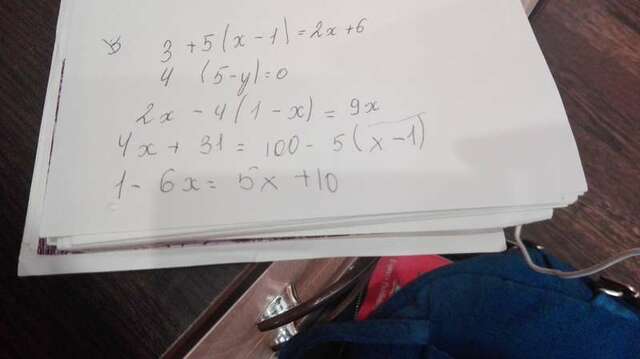 3 + 5(x - 1) = 2x + 6
4 (5 - y) = 0
2x - 4(1 - x) = 9x
4x + 31 = 100 - 5(x - 1)
1 - 6x = 5x + 10